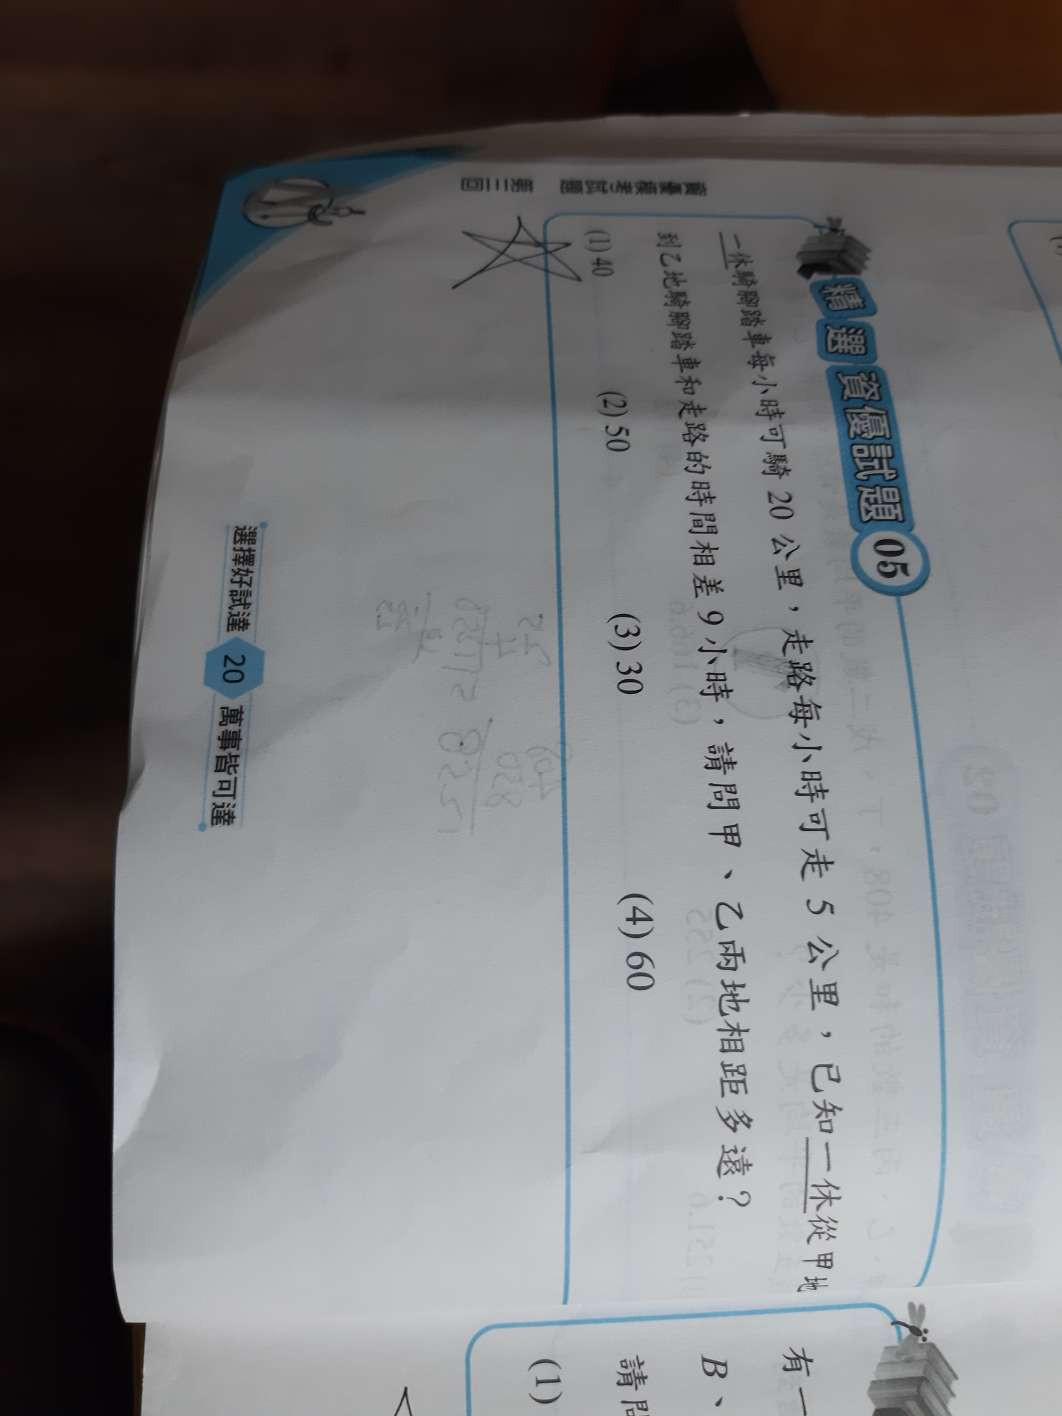 資優模考試題 第三回
精選資優試題 05
一休騎腳踏車每小時可騎 20 公里，走路每小時可走 5 公里，已知一休從甲地
到乙地騎腳踏車和走路的時間相差 9 小時，請問甲、乙兩地相距多遠？
(1) 40 (2) 50 (3) 30 (4) 60
選擇好試達 20 萬事皆可達
有一
B、
請問
(1)